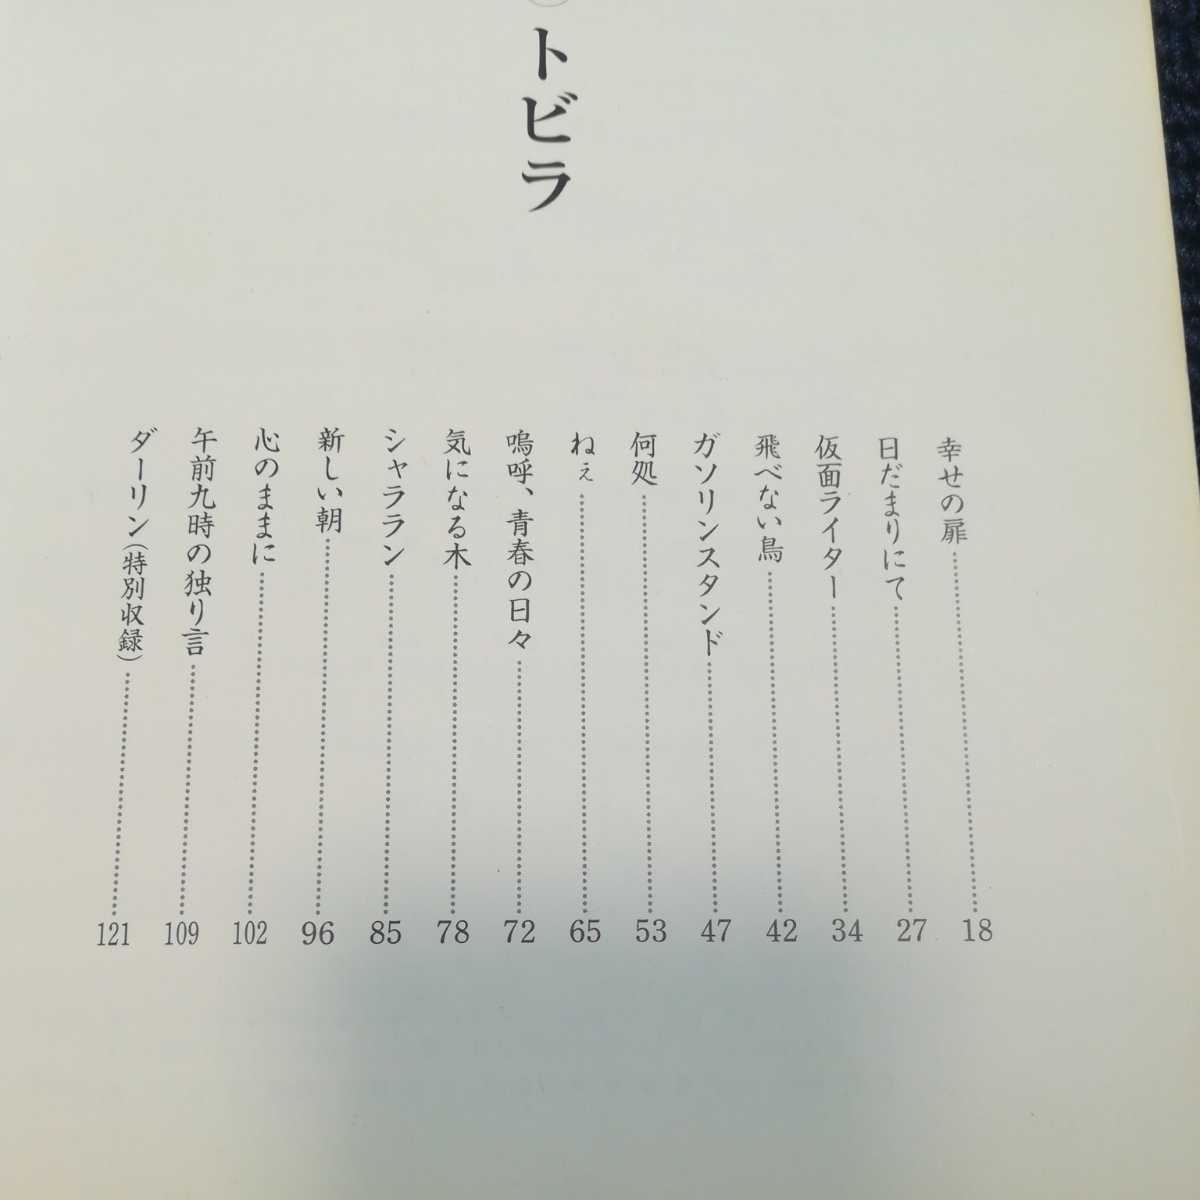 トビラ
幸せの扉 18
日だまりにて 27
仮面ライター 34
飛べない鳥 42
ガソリンスタンド 47
何処 53
ねぇ 65
嗚呼、青春の日々 72
気になる木 78
シャララン 85
新しい朝 96
心のままに 102
午前九時の独り言 109
ダーリン(特別収録) 121